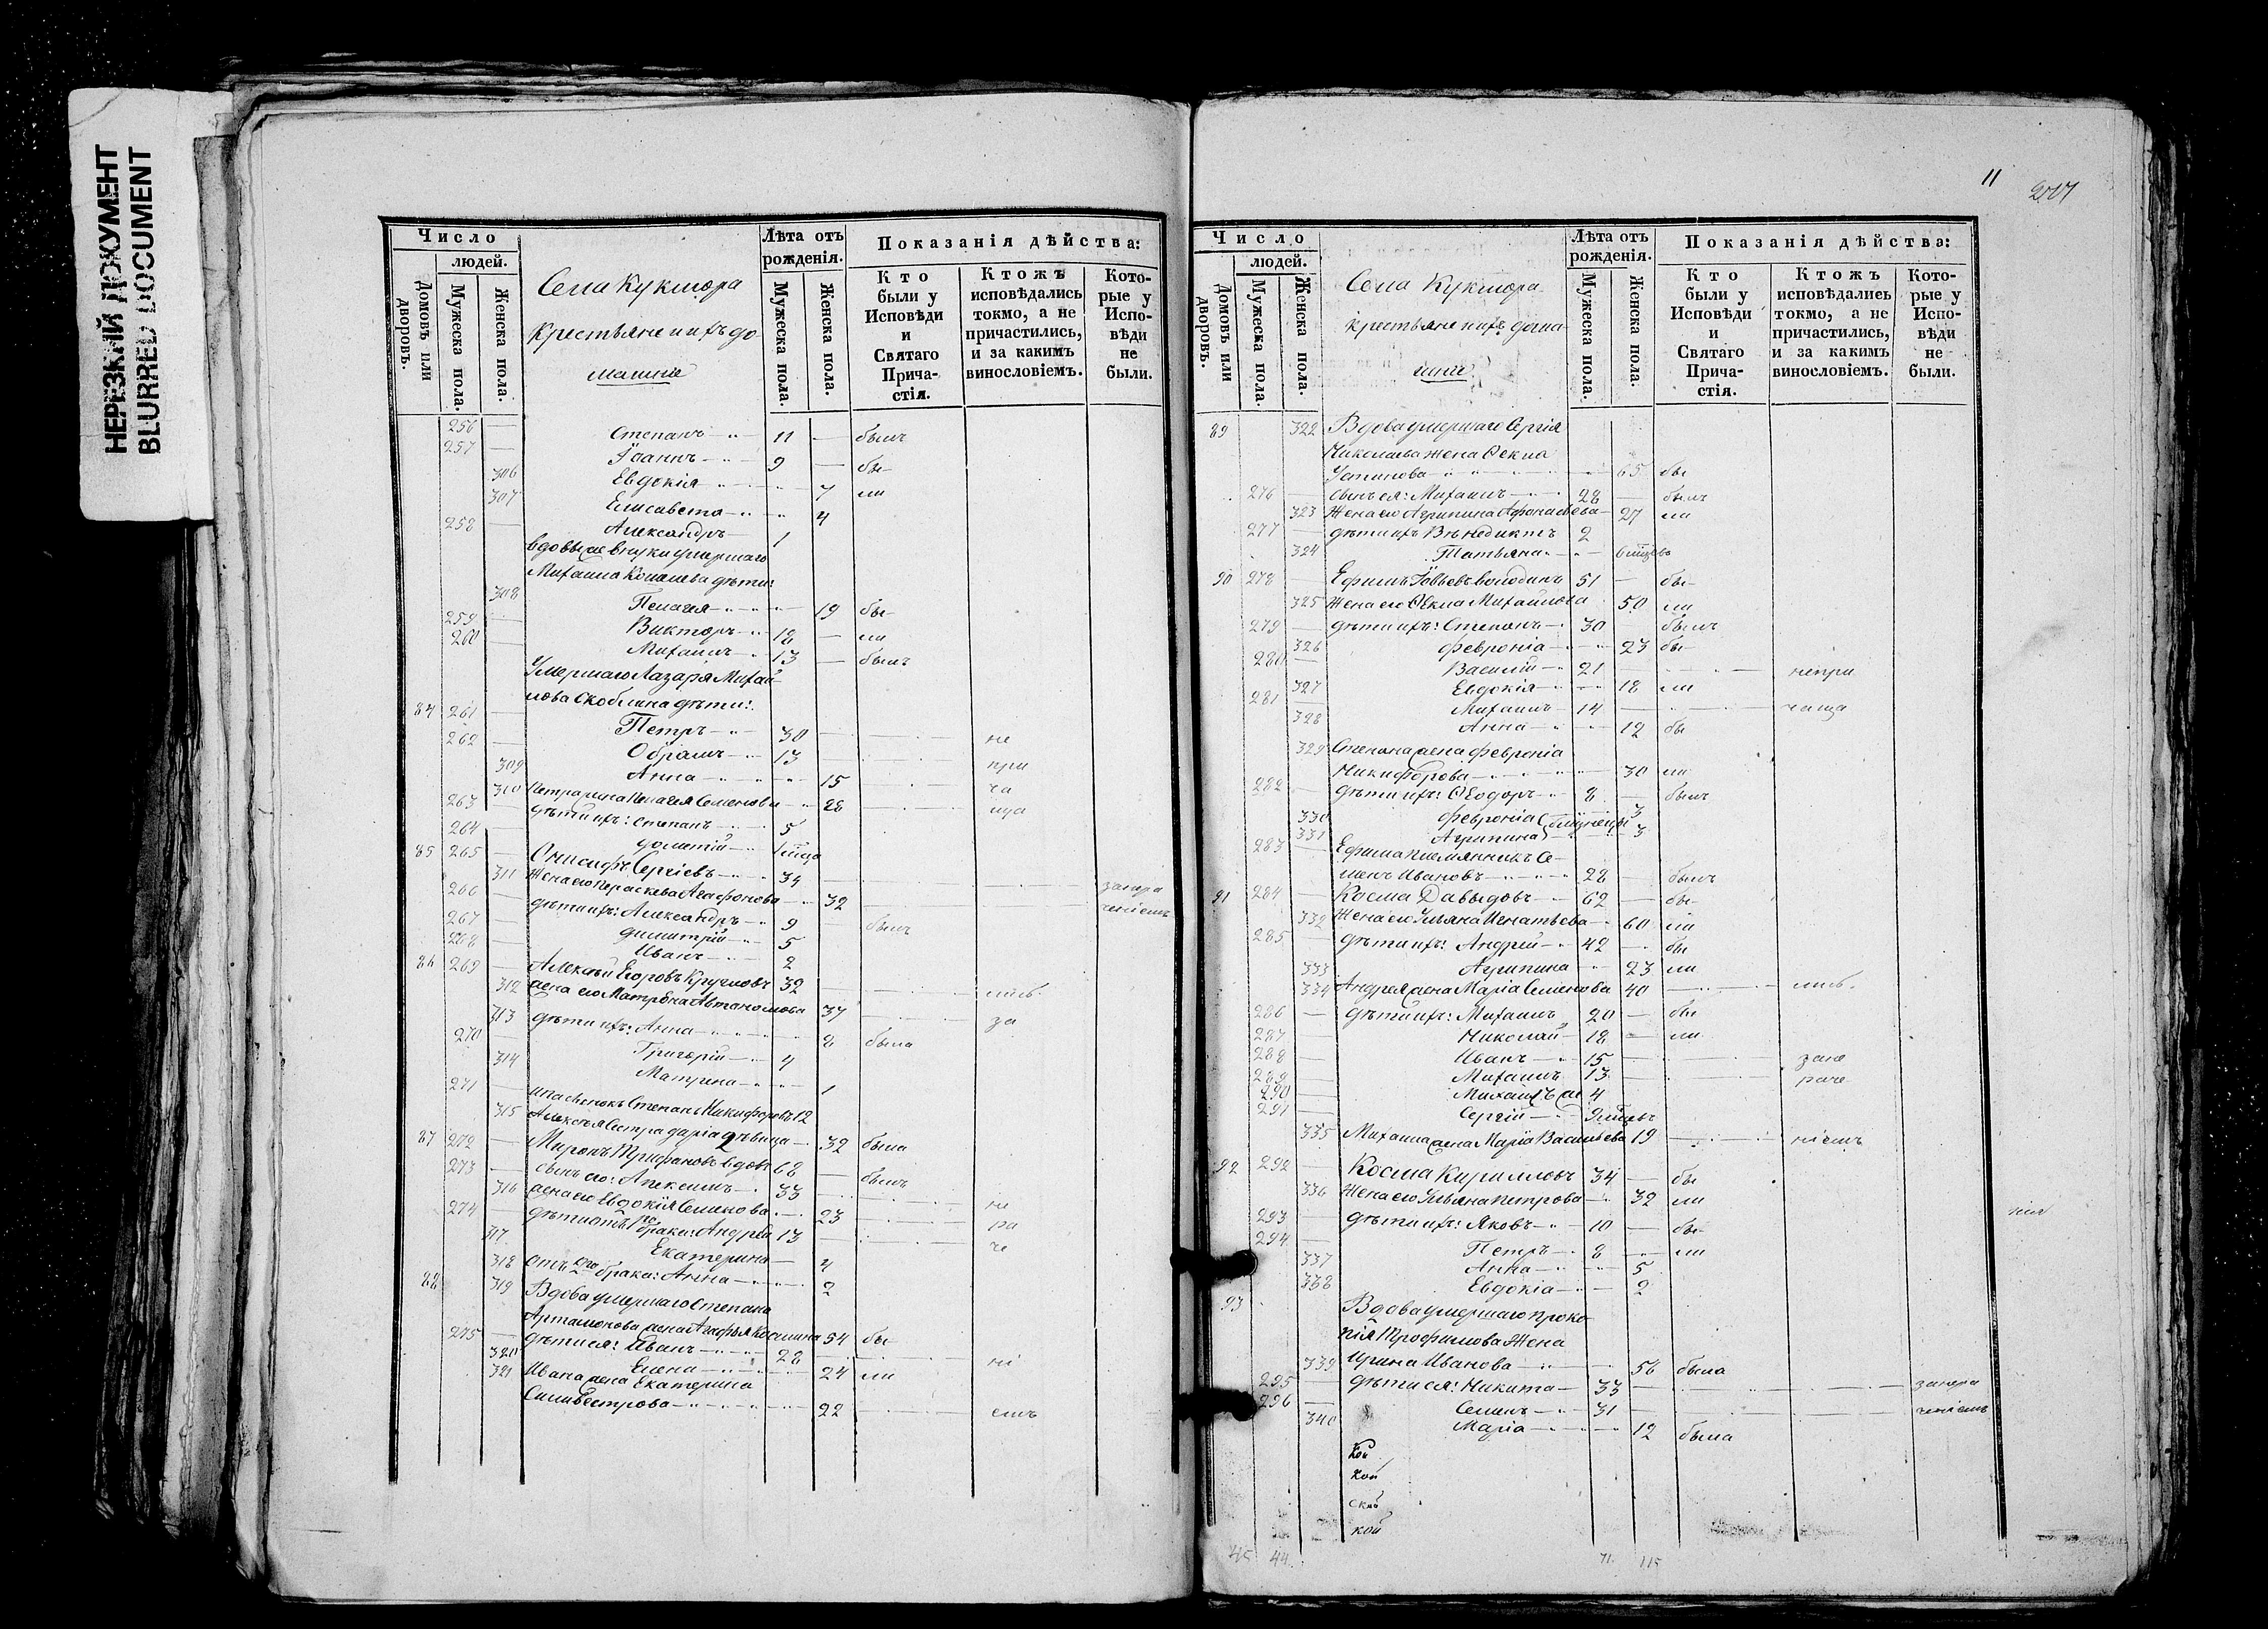 НЕРЕЗКИЙ ДОКУМЕНТ
BLURRED DOCUMENT
Число
людей.
Домовъ или дворовъ.
Мужеска пола.
Женска пола.
Села Кукмора
Крестьяне и ихъ до-
машніе
Лѣта отъ рожденія.
Мужеска пола.
Женска пола.
Показанія дѣйства:
Кто были у Исповѣди и Святаго Прича-стія.
Ктожъ исповѣдались токмо, а не причастились, и за какимъ винословіемъ.
Кото-рые у Испо-вѣди не были.
256 — Степанъ 11 — былъ
257 — Іоаннъ 9 — бы-
306 Евдокія 7 ли
307 Елисавета 4
258 — Александръ 1
вдовы же внуки умершаго
Михаила дѣти:
308 Пелагея 19 бы-
259 Викторъ 18 — ли
260 Михаилъ 13 — былъ
Умершаго Лазаря Михай-
лова Скоблина дѣти:
84 261 — Петръ 30 — не
262 — Обрамъ 13 при
309 Анна 15 ча
310 Петра жена Пелагея Семенова 28 ща
263 дѣти ихъ: Степанъ 5
264 — Дометій
85 265 — Онисифъ Сергіевъ 34 — занера
311 Жена его Пераскева Агафонова 32 ченіемъ
266 — дѣти ихъ: Александръ 9 — былъ
267 — Димитрій 5
268 — Иванъ 2
86 269 — Алексѣй Егоровъ Кругловъ 32
312 жена его Матрена Автаномова 37
313 дѣти ихъ: Анна 8 была за
270 — Григорій 4
314 Матрена 1
271 — Степанъ Никифоровъ 12
315 Алексѣя сестра Дарія дѣвица 32 была
87 272 — Миронъ Трифановъ вдовъ 68 — былъ
273 — сынъ его: Алексѣй 33 не
316 жена его Евдокія Семенова 23 ра
274 — дѣти отъ 1го брака: Андрей 13 че
317 Екатерина 4
318 отъ 2го брака: Анна 2
88 319 Вдова умершаго Степана
Артамонова жена Агафья Космина 54 бы
275 — дѣти ея: Иванъ 28 ні
320 Елена 24 ли
321 Ивана жена Екатерина
Силивестрова 22 емъ
11
207
Число
людей.
Домовъ или дворовъ.
Мужеска пола.
Женска пола.
Села Кукмора
крестьяне и ихъ дома-
шніе
Лѣта отъ рожденія.
Мужеска пола.
Женска пола.
Показанія дѣйства:
Кто были у Исповѣди и Святаго Прича-стія.
Ктожъ исповѣдались токмо, а не причастились, и за какимъ винословіемъ.
Кото-рые у Испо-вѣди не были.
89 322 Вдова умершаго Сергія
Николаева жена Ѳекла
Устинова 65 бы
276 — сынъ ея: Михаилъ 28 — былъ
323 Жена его Агрипина Афонасьева 27 ли
277 — дѣти ихъ Венедиктъ 2
324 Татьяна 6 мѣсцевъ
90 278 — Ефимъ Володинъ 51 — бы-
325 Жена его Ѳекла Михайлова 50 ли
279 — дѣти ихъ: Степанъ 30 былъ
326 Февронія 23 бы-
280 — Василій 21 непри
327 Евдокія 18 ли
281 — Михаилъ 14 чаща
328 Анна 12 бы
329 Степана жена Февронія
Никифорова 30 ли
282 — дѣти ихъ: Ѳеодоръ 8 — былъ
330 Февронія (близнецы 3
331 Агрипина) 3
283 — Ефима племянникъ Се-
менъ Ивановъ 28 — былъ
91 284 — Косма Давыдовъ 62 — бы-
332 Жена его Ульяна Игнатьева 60 ли
285 — дѣти ихъ: Андрей 42 — бы
333 Агрипина 23 ли
334 Андрея жена Марія Семенова 40
286 — дѣти ихъ: Михаилъ 20 — бы
287 Николай 18 — ли
288 — Иванъ 15 зане
289 — Михаилъ 13 раче-
290 — Михаилъ же 4
291 — Сергій
335 Михаила жена Марія Васильева 19 ніемъ
92 292 — Косма Кирилловъ 34 — бы
336 Жена его Ульяна Петрова 32 ли
293 — дѣти ихъ: Яковъ 10 — бы-
294 — Петръ 8 — ли
337 Анна 5
338 Евдокія 2
93 Вдова умершаго Проко-
пія Трофимова Жена
339 Ирина Иванова 56 была
295 — дѣти ея: Никита 33 — занера
296 — Семенъ 31 — ченіемъ
340 Марія 12 была
кой
кой
ской
кой
45 44 71 115